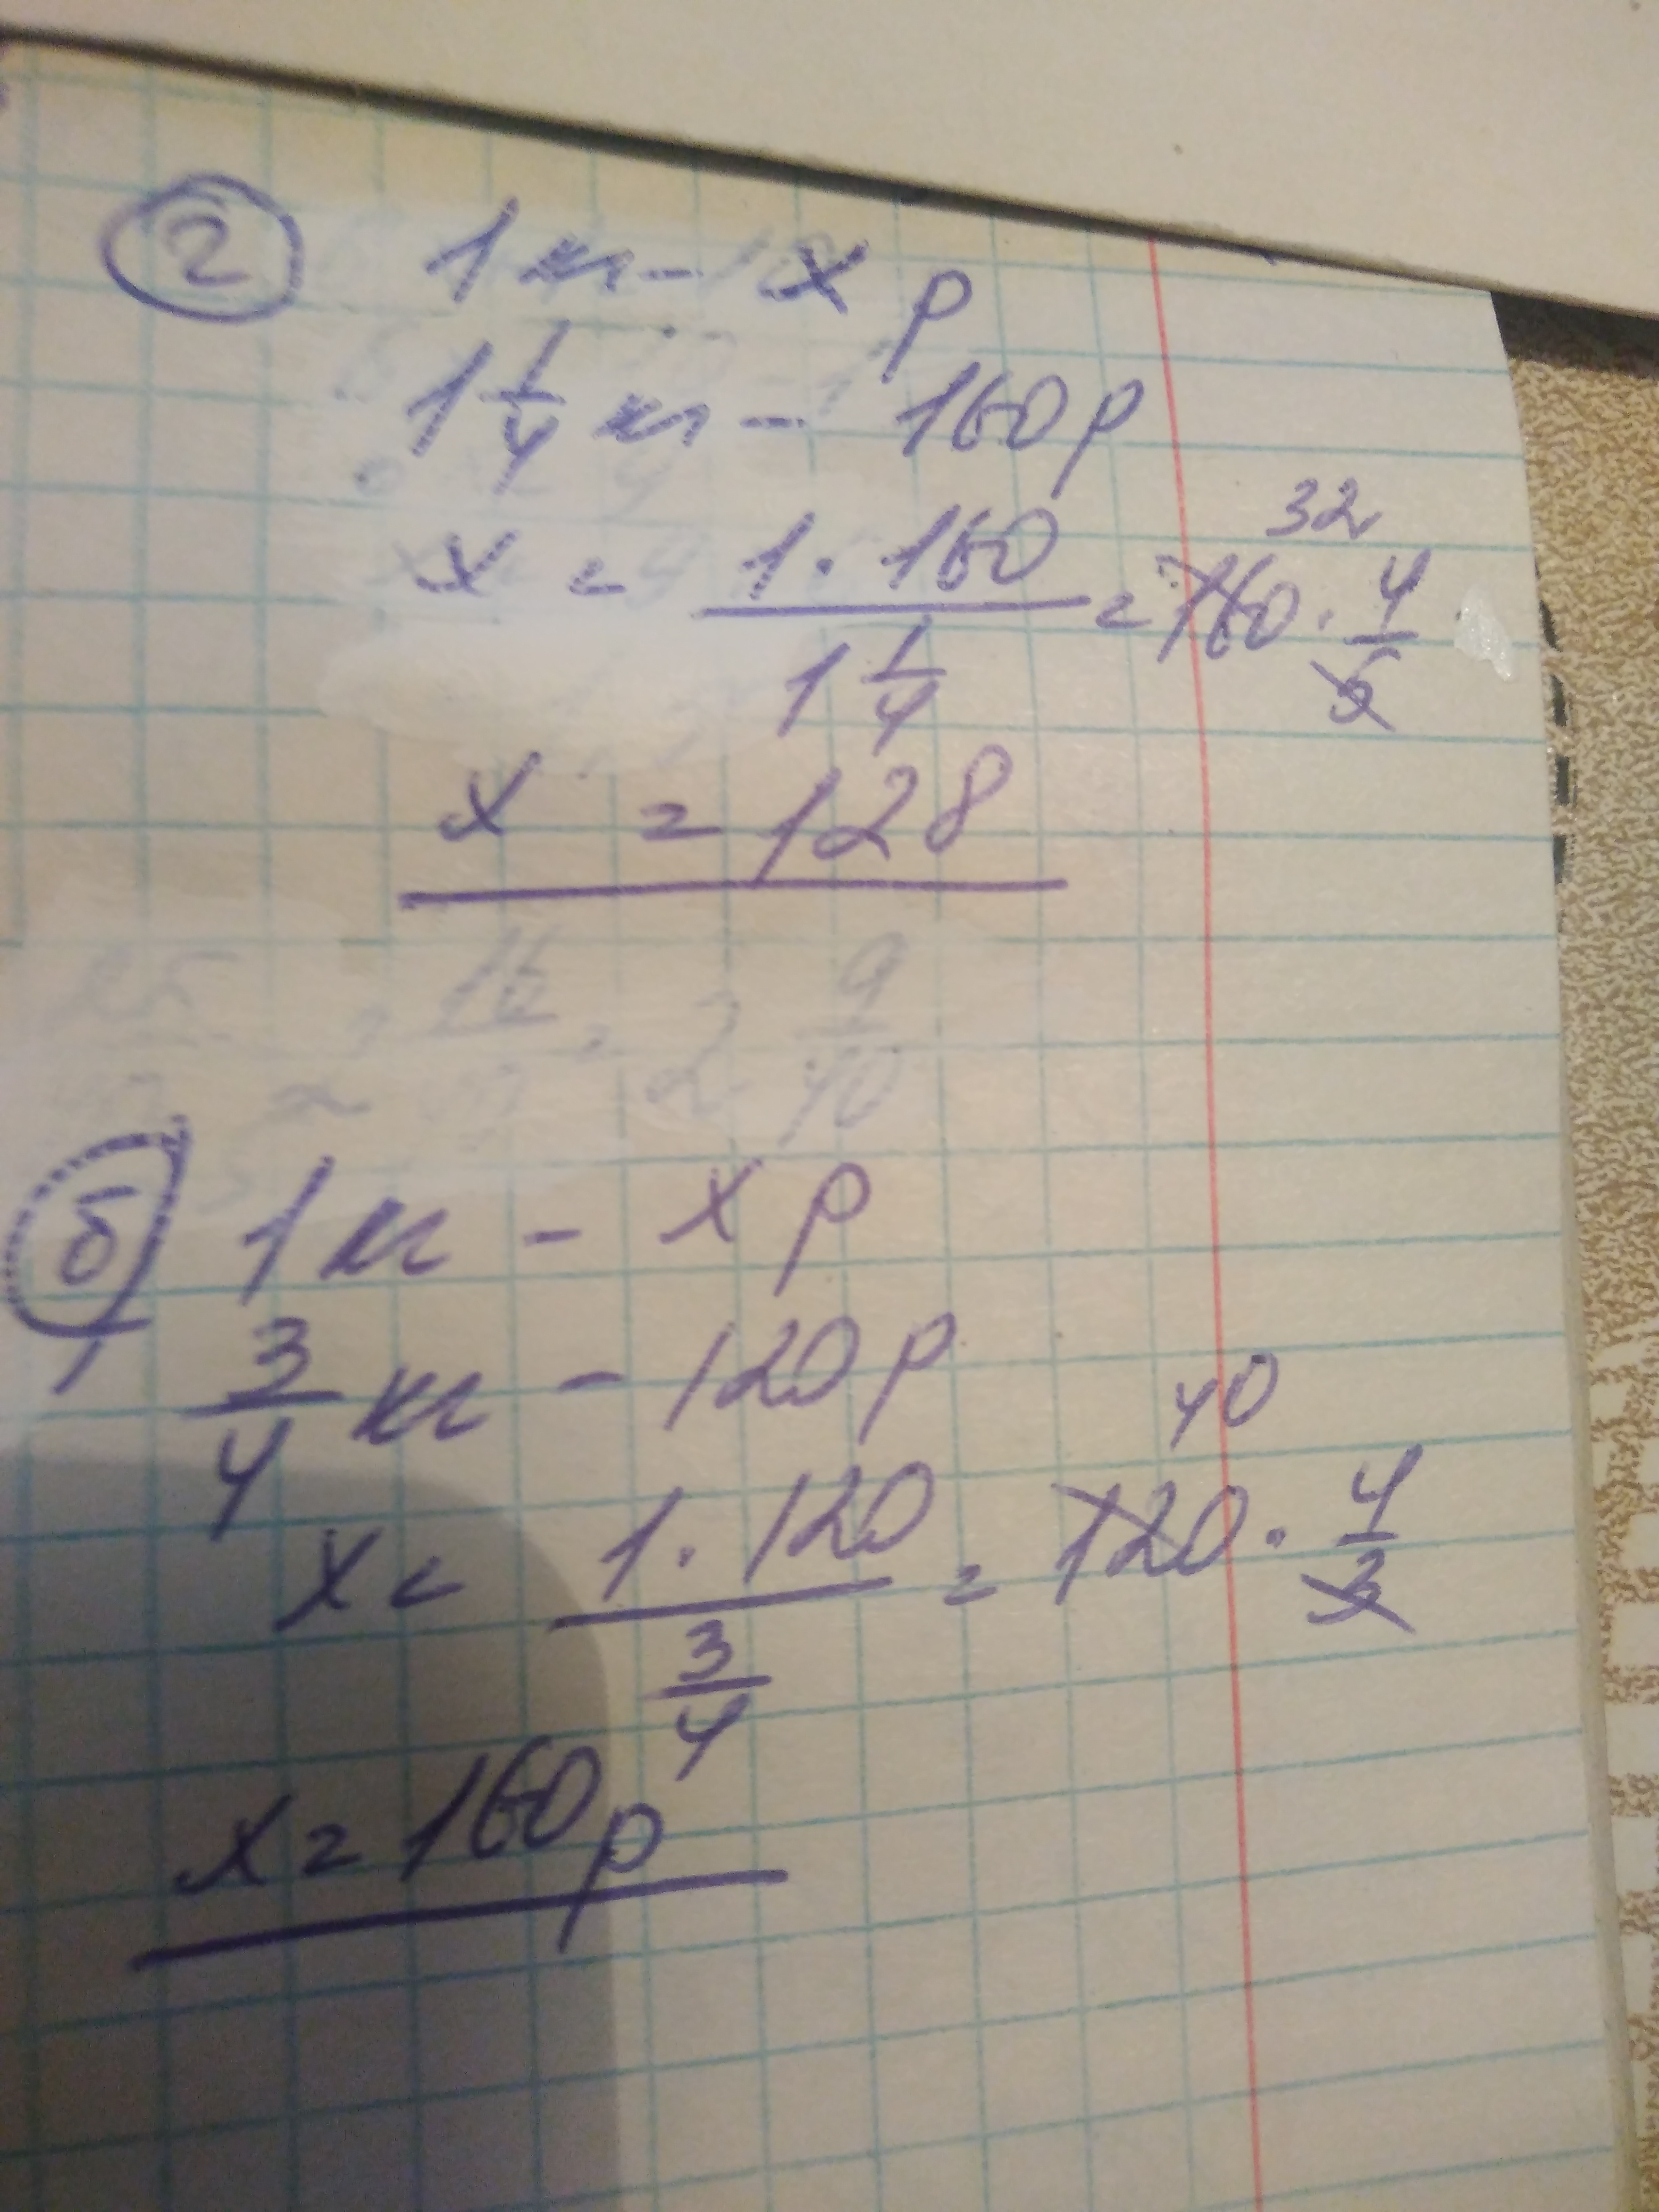 2 1 кг - x р
1 1/4 кг - 160 р
x = 1 · 160 / 1 1/4 = 160 · 4/5 32
x = 128
= 2 9/40
б 1 кг - x р
3/4 кг - 120 р
x = 1 · 120 / 3/4 = 120 · 4/3 40
x = 160 р